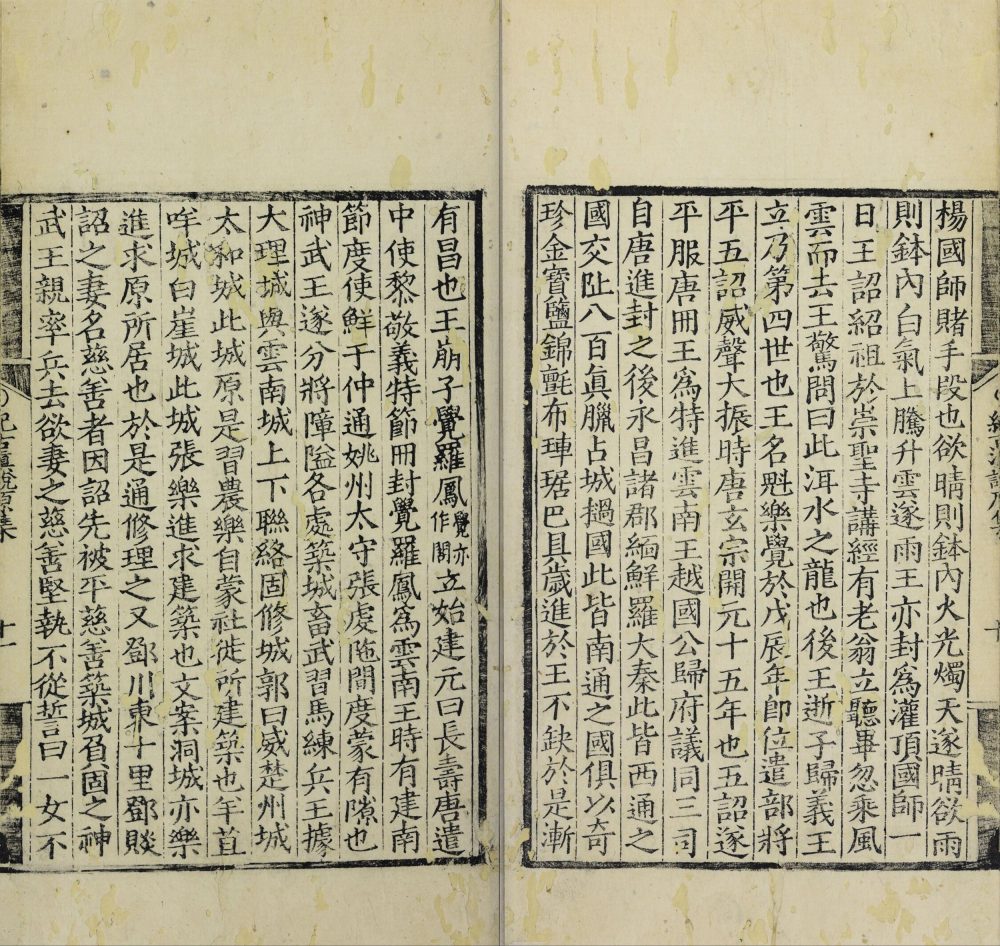 楊國師賭手段也欲晴則鉢內火光燭天遂晴欲雨
則鉢內白氣上騰升雲遂雨王亦封為灌頂國師一
日王詔紹祖於崇聖寺講經有老翁立聽畢忽乘風
雲而去王驚問曰此洱水之龍也後王逝子歸義王
立乃第四世也王名魁樂覺於戊辰年即位遣部將
平五詔威聲大振時唐玄宗開元十五年也五詔遂
平服唐冊王為特進雲南王越國公歸府議同三司
自唐進封之後永昌諸郡緬鮮羅大秦此皆西通之
國交阯八百真臘占城撾國此皆南通之國俱以奇
珍金寶鹽錦氈布琿琚巴貝歲進於王不缺於是漸
有昌也王崩子覺羅鳳覺亦作閣立始建元曰長壽唐遣
中使黎敬義特節冊封覺羅鳳為雲南王時有建南
節度使鮮于仲通姚州太守張虔陁間度蒙有隙也
神武王遂分將障隘各處築城畜武習馬練兵王據
大理城與雲南城上下聯絡固修城郭曰威楚州城
太和城此城原是習農樂自蒙社徙所建築也羊苴
咩城白崖城此城張樂進求建築也文案洞城亦樂
進求原所居也於是通修理之又鄧川東十里鄧賧
詔之妻名慈善者因詔先被平慈善築城負固之神
武王親率兵去欲妻之慈善堅執不從誓曰一女不
十一